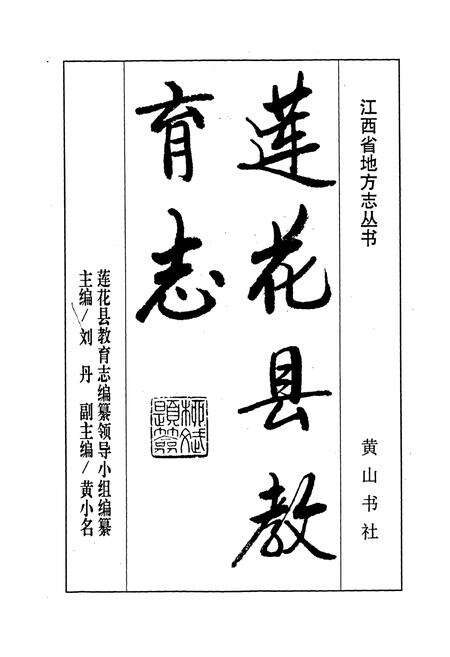 江西省地方志丛书
黄山书社
莲花县教
育志
莲花县教育志编纂领导小组编纂
主编/刘丹 副主编/黄小名